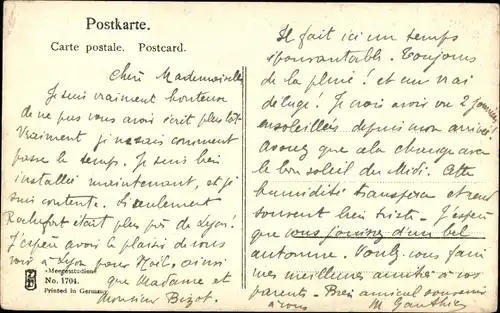 Postkarte.
Carte postale. Postcard.
Chère Mademoiselle
Je suis vraiment honteuse
de ne pas vous avoir écrit plus tôt
Vraiment je ne sais comment
passe le temps. Je suis bien
installée maintenant, et je
suis contente. Si seulement
Rochefort était plus près de Lyon!
J'espère avoir le plaisir de vous
voir à Lyon pour Noël, ainsi
que Madame et
Monsieur Bizot.
«Meeresstudien»
No. 1704.
Printed in Germany
Il fait ici un temps
épouvantable. Toujours
de la pluie! et un vrai
déluge! Je crois avoir vu 2 journées
ensoleillées depuis mon arrivée.
Avouez que cela change avec
le bon soleil du Midi. Cette
humidité transperce et rend
souvent bien triste. J'espère
que vous jouissez d'un bel
automne. Voulez-vous faire
mes meilleures amitiés à vos
parents. Bien amical souvenir
à vous M. Gauthier